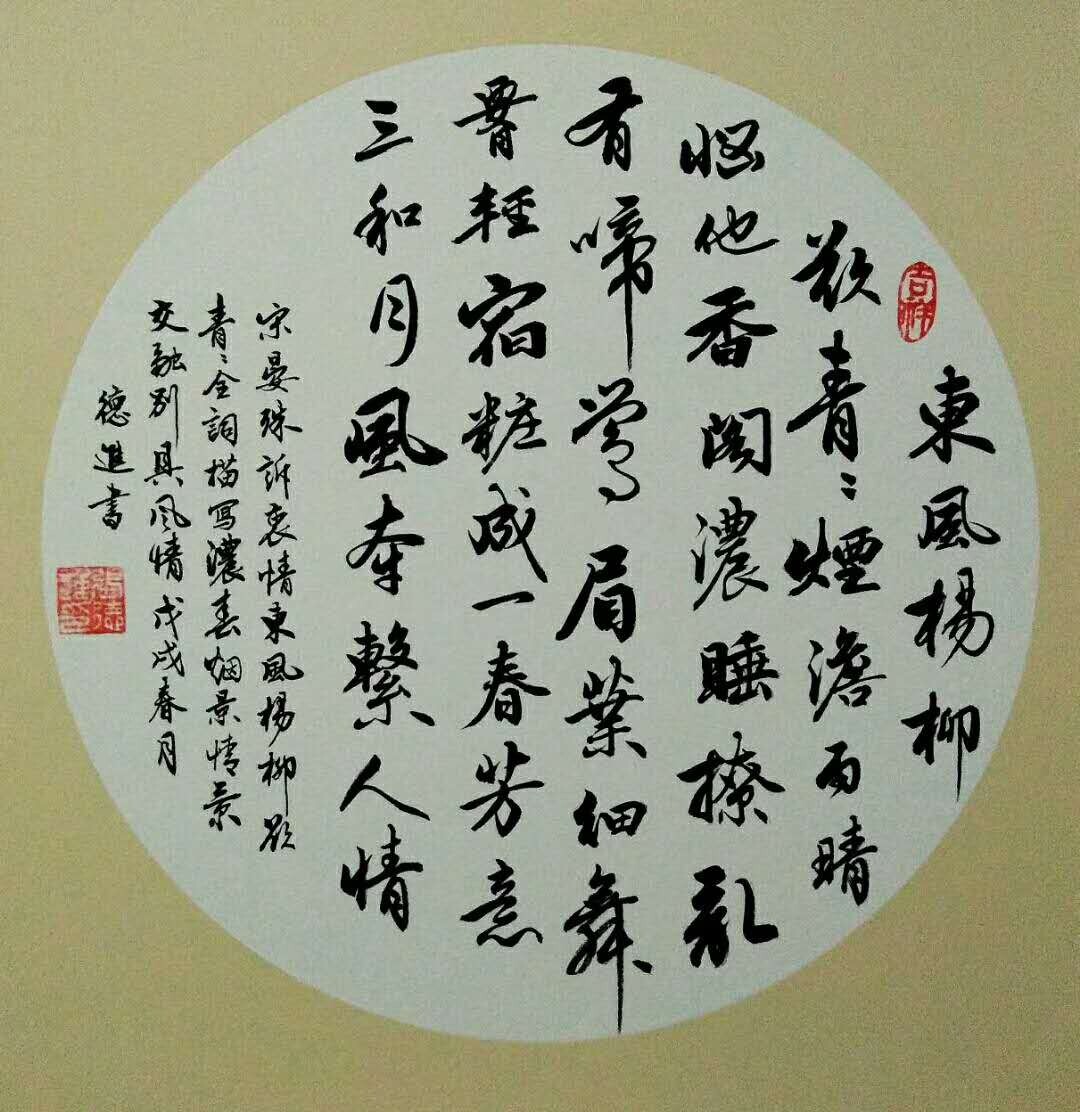 東風楊柳
欲青〻煙澹雨晴
惱他香閣濃睡撩亂
有啼鶯眉葉細舞
腰輕宿粧成一春芳意
三和月風牽繫人情
宋晏殊訴衷情東風楊柳欲
青〻全詞描寫濃春烟景情景
交融别具風情戊戌春月
德進書